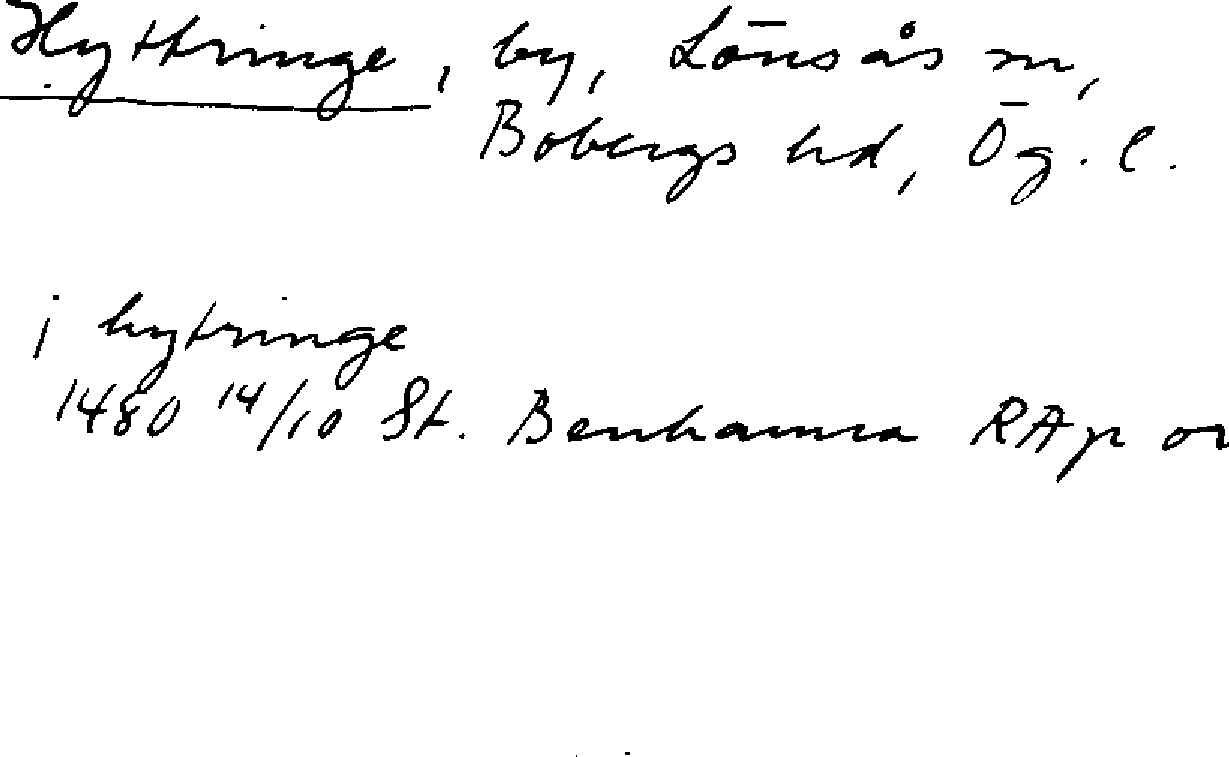 Hyttringe, by, Lönsås sn,
Bobergs hd, Ög. l.
i hytringe
1480 14/10 St. Benhamra RAp or